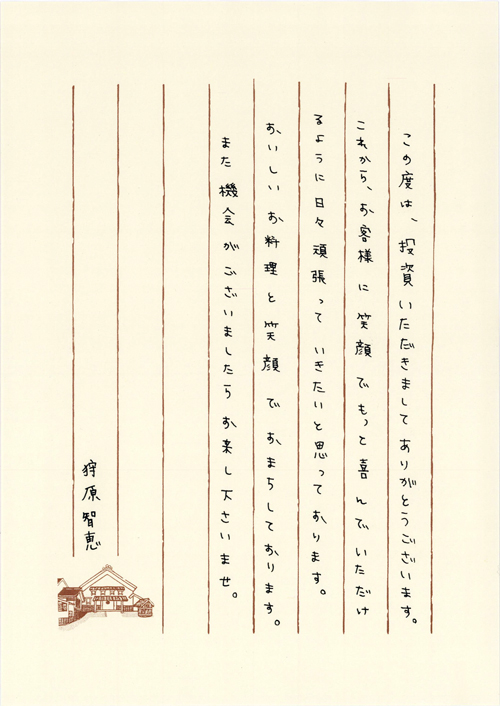 この度は、投資いただきましてありがとうございます。
これから、お客様に笑顔でもっと喜んでいただけ
るように日々頑張っていきたいと思っております。
おいしいお料理と笑顔でおまちしております。
また機会がございましたらお来し下さいませ。
狩原智恵